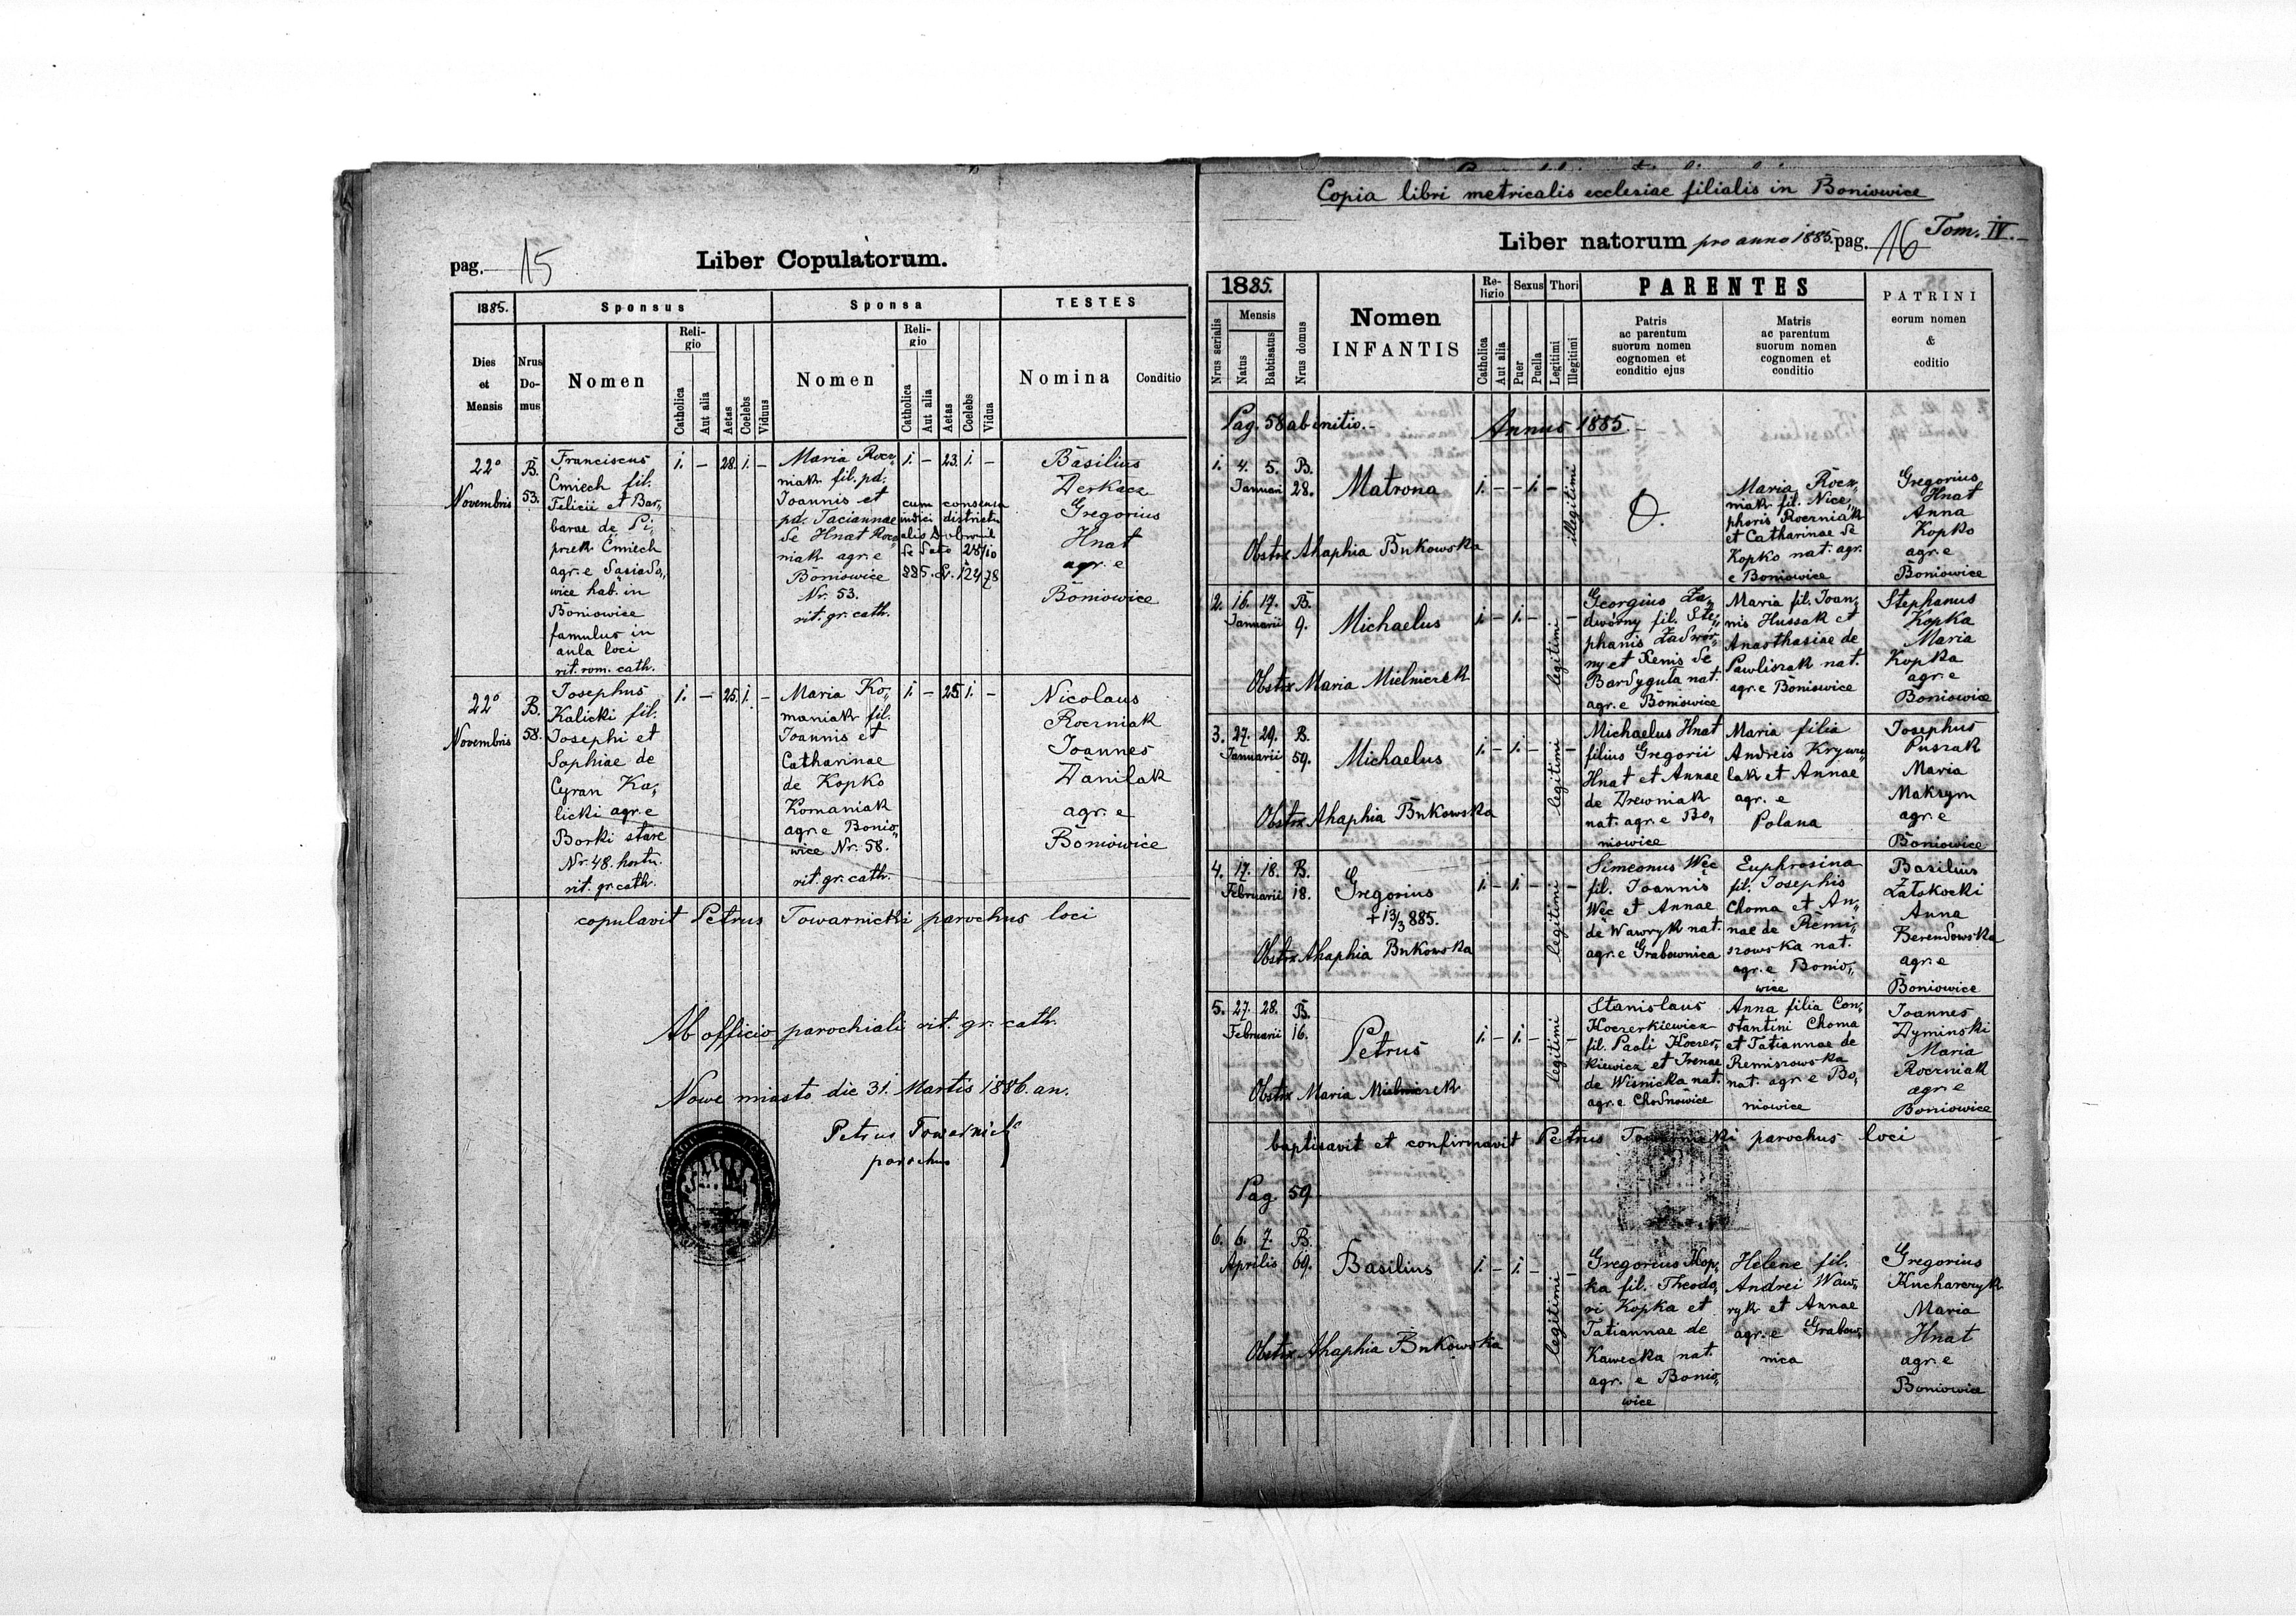 pag. 15
Liber Copulatorum.
1885.
Sponsus
Sponsa
TESTES
Dies
et
Mensis
Nrus
Do-
mus
Nomen
Reli-
gio
Catholica
Aut alia
Aetas
Coelebs
Viduus
Nomen
Reli-
gio
Catholica
Aut alia
Aetas
Coelebs
Vidua
Nomina
Conditio
22°
Novembris
B.
53.
Franciscus
Ćmiech fil.
Felicii et Bar„
barae de Pi„
przek Ćmiech
agr. e Sąsiado„
wice hab. in
Boniowice
famulus in
aula loci
rit. rom. cath.
i. — 28. i. —
Maria Rocz„
niak fil. pd.
Joannis et
pd. Taciannae
de Hnat Rocz„
niak agr. e
Boniowice
Nr. 53.
rit. gr. cath.
i. — 23. i. —
cum consensu
iudici districtu
alis Dobromil
de dato 28/10
885. L. 12478
Basilius
Derkacz
Gregorius
Hnat
agr. e
Boniowice
22°
Novembris
B.
58.
Josephus
Kalicki fil.
Josephi et
Sophiae de
Cyran Ka„
licki agr. e
Borki stare
Nr. 48. hortu.
rit. gr. cath.
i. — 25. i. —
Maria Ko„
maniak fil.
Joannis et
Catharinae
de Kopko
Komaniak
agr. e Bonio„
wice Nr. 58.
rit. gr. cath.
i. — 25 i. —
Nicolaus
Roczniak
Joannes
Danilak
agr. e
Boniowice
copulavit Petrus Towarnicki parochus loci
Ab officio parochiali rit. gr. cath.
Nowe miasto die 31. Martis 1886. an.
Petrus Towarnicki
parochus
Copia libri metricalis ecclesiae filialis in Boniowice
Tom. IV.
Liber natorum pro anno 1885. pag. 16
1885.
Nrus serialis
Mensis
Natus
Babtisatus
Nrus domus
Nomen
INFANTIS
Re-
ligio
Catholica
Aut alia
Sexus
Puer
Puella
Thori
Legitimi
Illegitimi
PARENTES
Patris
ac parentum
suorum nomen
cognomen et
conditio ejus
Matris
ac parentum
suorum nomen
cognomen et
conditio
PATRINI
eorum nomen
&
coditio
Pag. 58 ab initio.
Annus 1885.
1. 4. 5. B.
Januari 28.
Matrona
i. — — i. —
illegitimi
O.
Maria Rocz„
niak fil. Nice„
phoris Roczniak
et Catharinae de
Kopko nat. agr.
e Boniowice
Gregorius
Hnat
Anna
Kopko
agr. e
Boniowice
Obstrx Ahaphia Bukowska
2. 16. 17. B.
Januarii 9.
Michaelus
i. — i. —
legitimi
Georgius Za„
dwórny fil. Ste„
phanis Zadwor„
ny et Xenis de
Bardyguła nat.
agr. e Boniowice
Maria fil. Joan„
nis Hussak et
Anasthasiae de
Pawliszak nat.
agr. e Boniowice
Stephanus
Kopka
Maria
Kopka
agr. e
Boniowice
Obstrx Maria Mielniczek
3. 27. 29. B.
Januarii 59.
Michaelus
i. — i. —
legitimi
Michaelus Hnat
filius Gregorii
Hnat et Annae
de Drewniak
nat. agr. e Bo„
niowice
Maria filia
Andreis Krywu„
lak et Annae
agr. e
Polana
Josephus
Puszak
Maria
Maksym
agr. e
Boniowice
Obstrx Ahaphia Bukowska
4. 17. 18. B.
Februarii 18.
Gregorius
+ 13/3 885.
i. — i. —
legitimi
Simeonus Węc
fil. Joannis
Węc et Annae
de Wawryk nat.
agr. e Grabownica
Euphrosina
fil. Josephis
Choma et An„
nae de Remi„
szowska nat.
agr. e Bonio„
wice
Basilius
Załskocki
Anna
Berendowska
agr. e
Boniowice
Obstrx Ahaphia Bukowska
5. 27. 28. B.
Februarii 16.
Petrus
i. — i. —
legitimi
Stanislaus
Koczerkiewicz
fil. Paoli Koczer„
kiewicz et Irenae
de Wiśnicka nat.
agr. e Chodnowice
Anna filia Con„
stantini Choma
et Tatiannae de
Remiszowska
nat. agr e Bo„
niowice
Joannes
Dyminski
Maria
Roczniak
agr. e
Boniowice
Obstrx Maria Mielniczek
baptisavit et confirmavit Petrus Towarnicki parochus loci
Pag. 59.
6. 6. 7. B.
Aprilis 69.
Basilius
i. — i. —
legitimi
Gregorius Kop„
ka fil. Theodo„
ri Kopka et
Tatiannae de
Kawecka nat.
agr. e Bonio„
wice
Helene fil.
Andrei Waw„
ryk et Annae
agr. e Grabow„
nica
Gregorius
Kucharczyk
Maria
Hnat
agr. e
Boniowice
Obstrx Ahaphia Bukowska